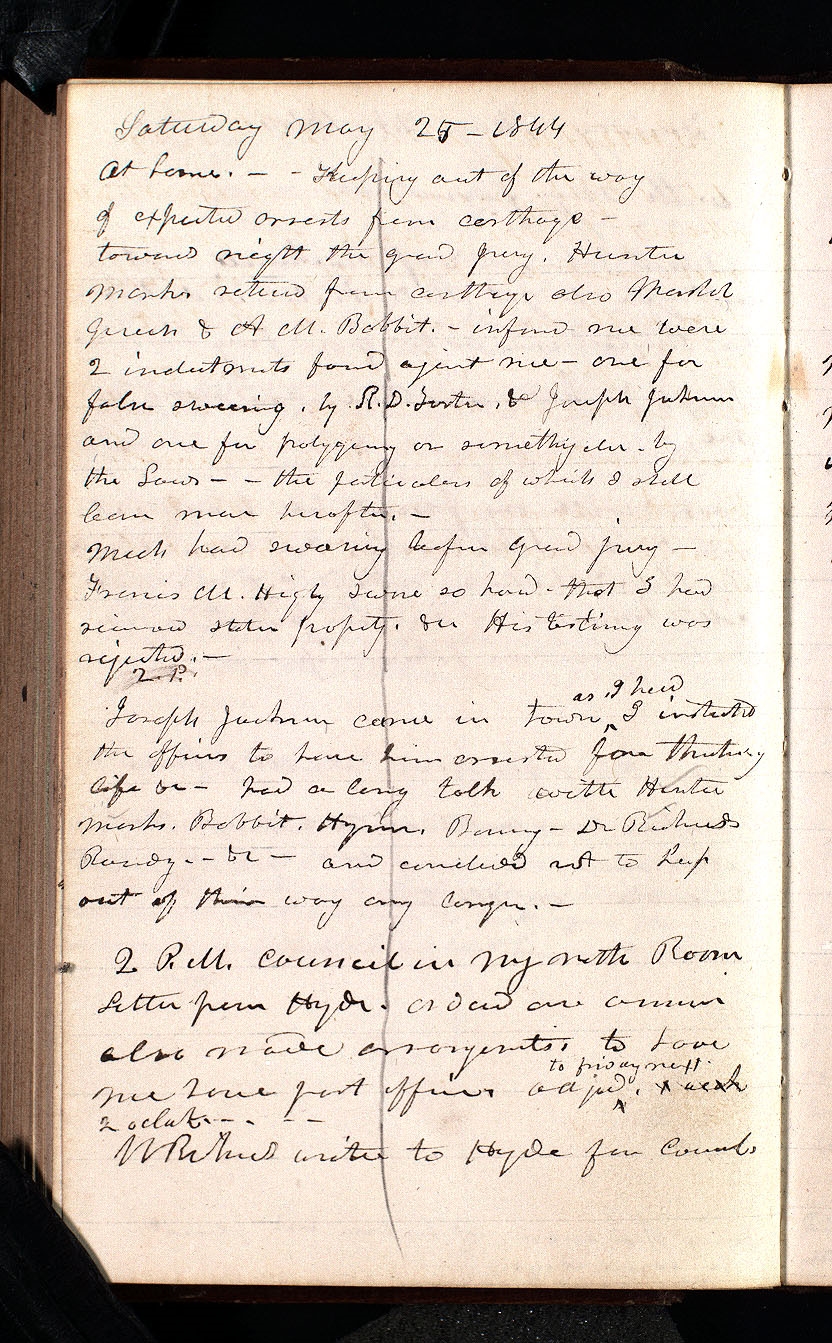 Saturday May 25 - 1844
At home. - - Keeping out of the way
of expected arrests from carthage -
toward night the grand jury. Hunter
Marks retured from carthage also Marshal
Green & A M. Babbit. - infomd me were
2 indictments found against me - one for
false swearing. by R. D. Foster. & Joseph Jackson
and one for polygamy or somethig else. by
the Laws - - the particulers of which I shall
learn more hereafter. -
Much hard swearing before grand jury -
Francis M. Higby swore so hard. that I had
recieved stolen property. &c His testimony was
rejected. -
2 P.
Joseph Jackson came in town as I heard I instructed
the officers to have him arrested for Threatning
life &c - had a long talk with Hunter
Marks. Babbit. Hyrum. Bonny - Dr Richards
&c - and concluded not to keep
out of their way any longer. -
2 P.M. Council in my north Room
Letter from Hyde. read and answer
also made arrangements to have
me have post office. adjd. to friday next. 1 week
2 oclock. - - -
W Richards write to Hyde for Council